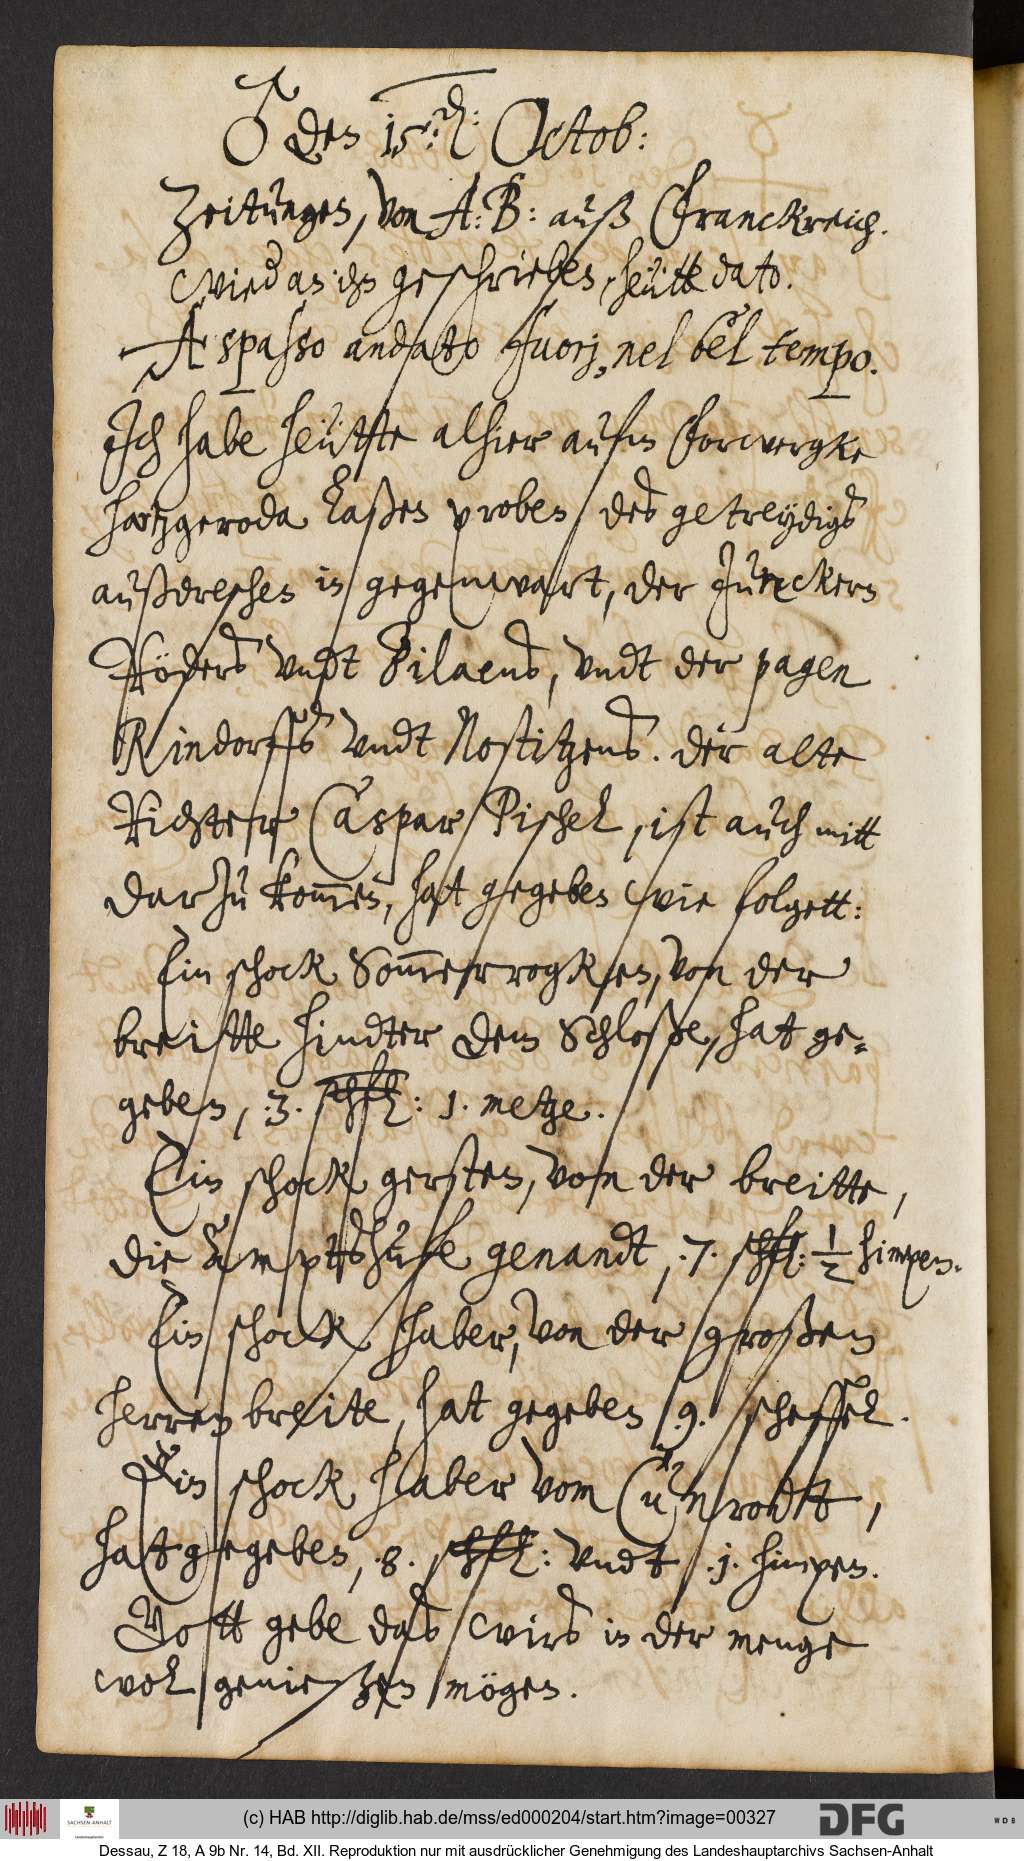 ♂ den 15.den: Octob:
Zeitungen, von A: B: auß Franckreich.
Wied an ihn geschrieben, heütte dato.
A spasso andato fuorj, nel bel tempo.
Ich habe heütte alhier aufm Forwergke
Hartzgeroda laßen proben des getreydigs
außdreschen in gegenwart, der Junckern
Röders undt Pilaens, undt der pagen
Rindorffs undt Nostitzens. der alte
Richter Caspar Pischel, ist auch mitt
darzu kommen, hat gegeben wie folgett:
Ein schock Sommerrogken, von der
breitte hindter dem Schloße, hat ge-
geben, .3. schfl: 1. metze.
Ein schock gersten, von der breitte,
die Ampttshufe genandt, .7. schfl: 1/2 himpen.
Ein schock haber, von der großen
herren breite, hat gegeben .9. scheffel.
Ein schock haber vom Cunrodt,
hat gegeben, .8. schfl: undt .1. himpen.
Gott gebe das wirs in der menge
wol genießen mögen.
(c) HAB http://diglib.hab.de/mss/ed000204/start.htm?image=00327
SACHSEN-ANHALT
DFG
WDB
Dessau, Z 18, A 9b Nr. 14, Bd. XII. Reproduktion nur mit ausdrücklicher Genehmigung des Landeshauptarchivs Sachsen-Anhalt